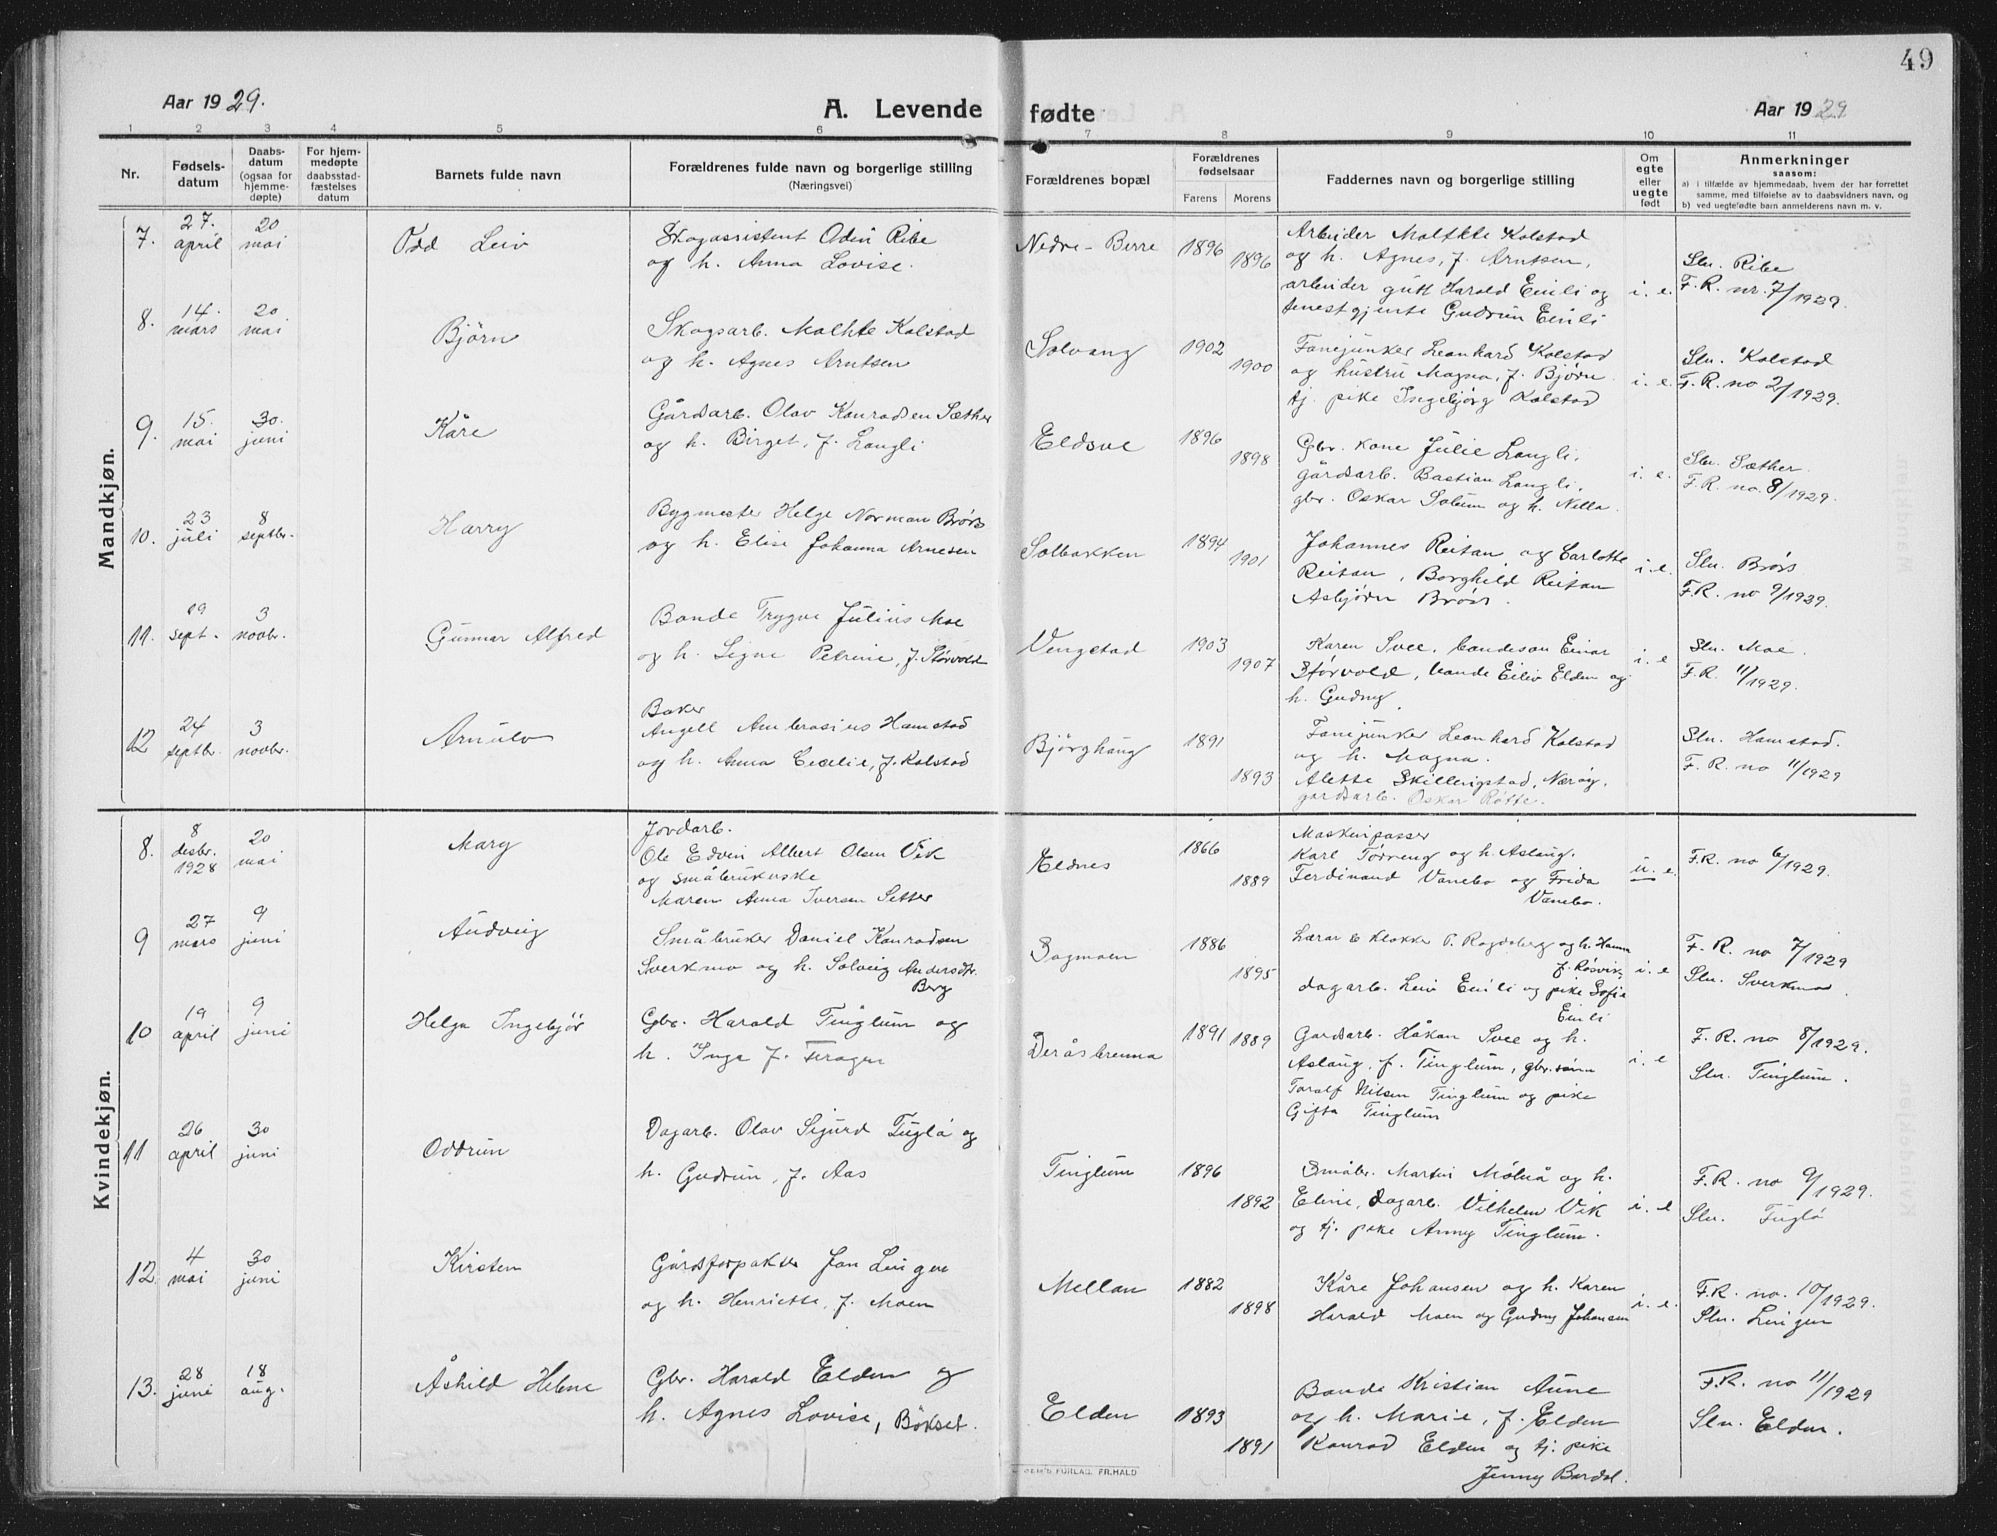 49
Aar 1929.
A. Levende fødte
Aar 1929
1 2 3 4 5 6 7 8 9 10 11
Nr.
Fødsels-
datum
Daabs-
datum
(ogsaa for
hjemme-
døpte)
For hjem-
medøpte
daabsstad-
fæstelses
datum
Barnets fulde navn
Forældrenes fulde navn og borgerlige stilling
(Næringsvei)
Forældrenes bopæl
Forældrenes
fødselsaar
Farens Morens
Faddernes navn og borgerlige stilling
Om
egte
eller
uegte
født
Anmerkninger
saasom:
a) i tilfælde av hjemmedaab, hvem der har forrettet
samme, med tilføielse av to daabsvidners navn, og
b) ved uegtefødte barn anmelderens navn m. v.
Mandkjøn.
7. 27. april 20 mai Odd Leiv
Skogassistent Odin Ribe
og h. Anna Lovise.
Nedre-Berre 1896 1896
Arbeider Molthte Kolstad
og h. Agnes, f. Arntsen,
arbeider gutt Harold Einli og
tenestgjente Gudrun Einli
i. e.
Sln. Ribe
F. R. nr. 7/1929.
8. 14. mars 20 mai Björn
Skogsarb. Molhte Kolstad
og h. Agnes Arntsen
Solvang 1902 1900
Fanejunker Leonhard Kolstad
og hustru Magna, f. Bjørn
tj. pike Ingebjörg Kolstad
i. e.
Sln. Kolstad
F. R. no 2/1929.
9. 15. mai 30. juni Kåre
Gårdsarb. Olav Konradsen Sæther
og h. Birget, f. Langli
Eldsve 1896 1898
Gbr. kone Julie Langli,
gårdsarb. Bastian Langli,
gbr. Oskar Solum og h. Nella.
i. e.
Sln. Sæther.
F. R. no. 8/1929.
10. 23 juli 8 septbr. Harry
Bygmester Helge Norman Brørs
og h. Elise Johanna Arnesen
Solbakken 1894 1901
Johannes Reitan og Carlotte
Reitan, Borghild Reitan
Asbjørn Brørs.
i. e.
Sln. Brørs
F. R. no 9/1929.
11. 19 sept. 3 novbr. Gunnar Alfred
Bonde Trygve Julius Moe
og h. Signe Petrine, f. Størvold
Vengstad 1903 1907
Karen Svee, bondesøn Einar
Størvold, bonde Eiliv Elden og
h. Gudny
i. e
Sln. Moe.
F. R. 11/1929.
12 24 septbr. 3 novbr. Arnulv
Baker
Angell Ambrosius Hamstad
og h. Anna Cecelie, f. Kolstad
Bjørghaug 1891 1893
Fanejunker Leonhard Kolstad
og h. Magna.
Alette Skillingstad, Nærøy.
gardsarb. Oskar Røtte.
Sln. Hamstad.
F. R. no 11/1929
Kvindekjøn.
8. 8 desbr. 1928 20 mai Mary
Jordarb.
Ole Edvin Albert Olsen Vik
og småbrukerske
Maren Anna Iversen Setter
Eldnes 1866 1889
Maskinpasser
Karl Torveng og h. Aslaug.
Ferdinand Vanebo og Frida
Vanebo.
u. e.
F.R. no 6/1929.
9 27 mars 9 juni Audveig
Småbruker Daniel Konradsen
Sverkmo og h. Solveig Andersdtr.
Berg
Dagmoen 1886 1895
Lærar & klokker P. Rogdaberg og h. Hanna
f. Røsvik,
dagarb. Leiv Einli og pike Sofie
Einli
i. e
F. R. no 7/1929
Sln. Sverkmo.
10 19 april 9 juni Helga Ingebjör
Gbr. Harald Tinglum og
h. Inga f. Feragen
Deråsbrenna 1891 1889
Gardsarb. Håkon Svee og h.
Aslaug, f. Tinglum, gbr. sønn
Toralf Nilsen Tinglum og pike
Gifta Tinglum
i. e
F. R. no 8/1929.
Sln. Tinglum.
11 26 april 30 juni Oddrun
Dagarb. Olav Sigurd Fuglå og
h. Gudrun, f. Aas
Tinglum 1896 1892
Småbr. Martin Moluå og h.
Eline, Dagarb. Vilhelm Vik
og tj. pike Anny Tinglum.
i. e
F. R. no 9/1929.
Sln. Fuglå
12. 4 mai 30 juni Kirsten
Gårdsforpakter Jon Lingen
og h. Henriette, f. Moen
Mellan 1882 1898
Kåre Johansen og h. Karen
Harald Moen og Gudny Johansen
i. e.
F.R. no. 10/1929.
Sln. Lingen
13. 28 juni 18 aug. Åshild Helene
Gbr. Harald Elden og
h. Agnes Lovise, Bökset.
Elden 1893 1891
Bonde Kristian Aune
og h. Marie, f. Elden
Konrad Elden og tj. pike
Jenny Bardal.
F.R. no 11/1929
Sln. Elden.
FORLAG, FR.HALD